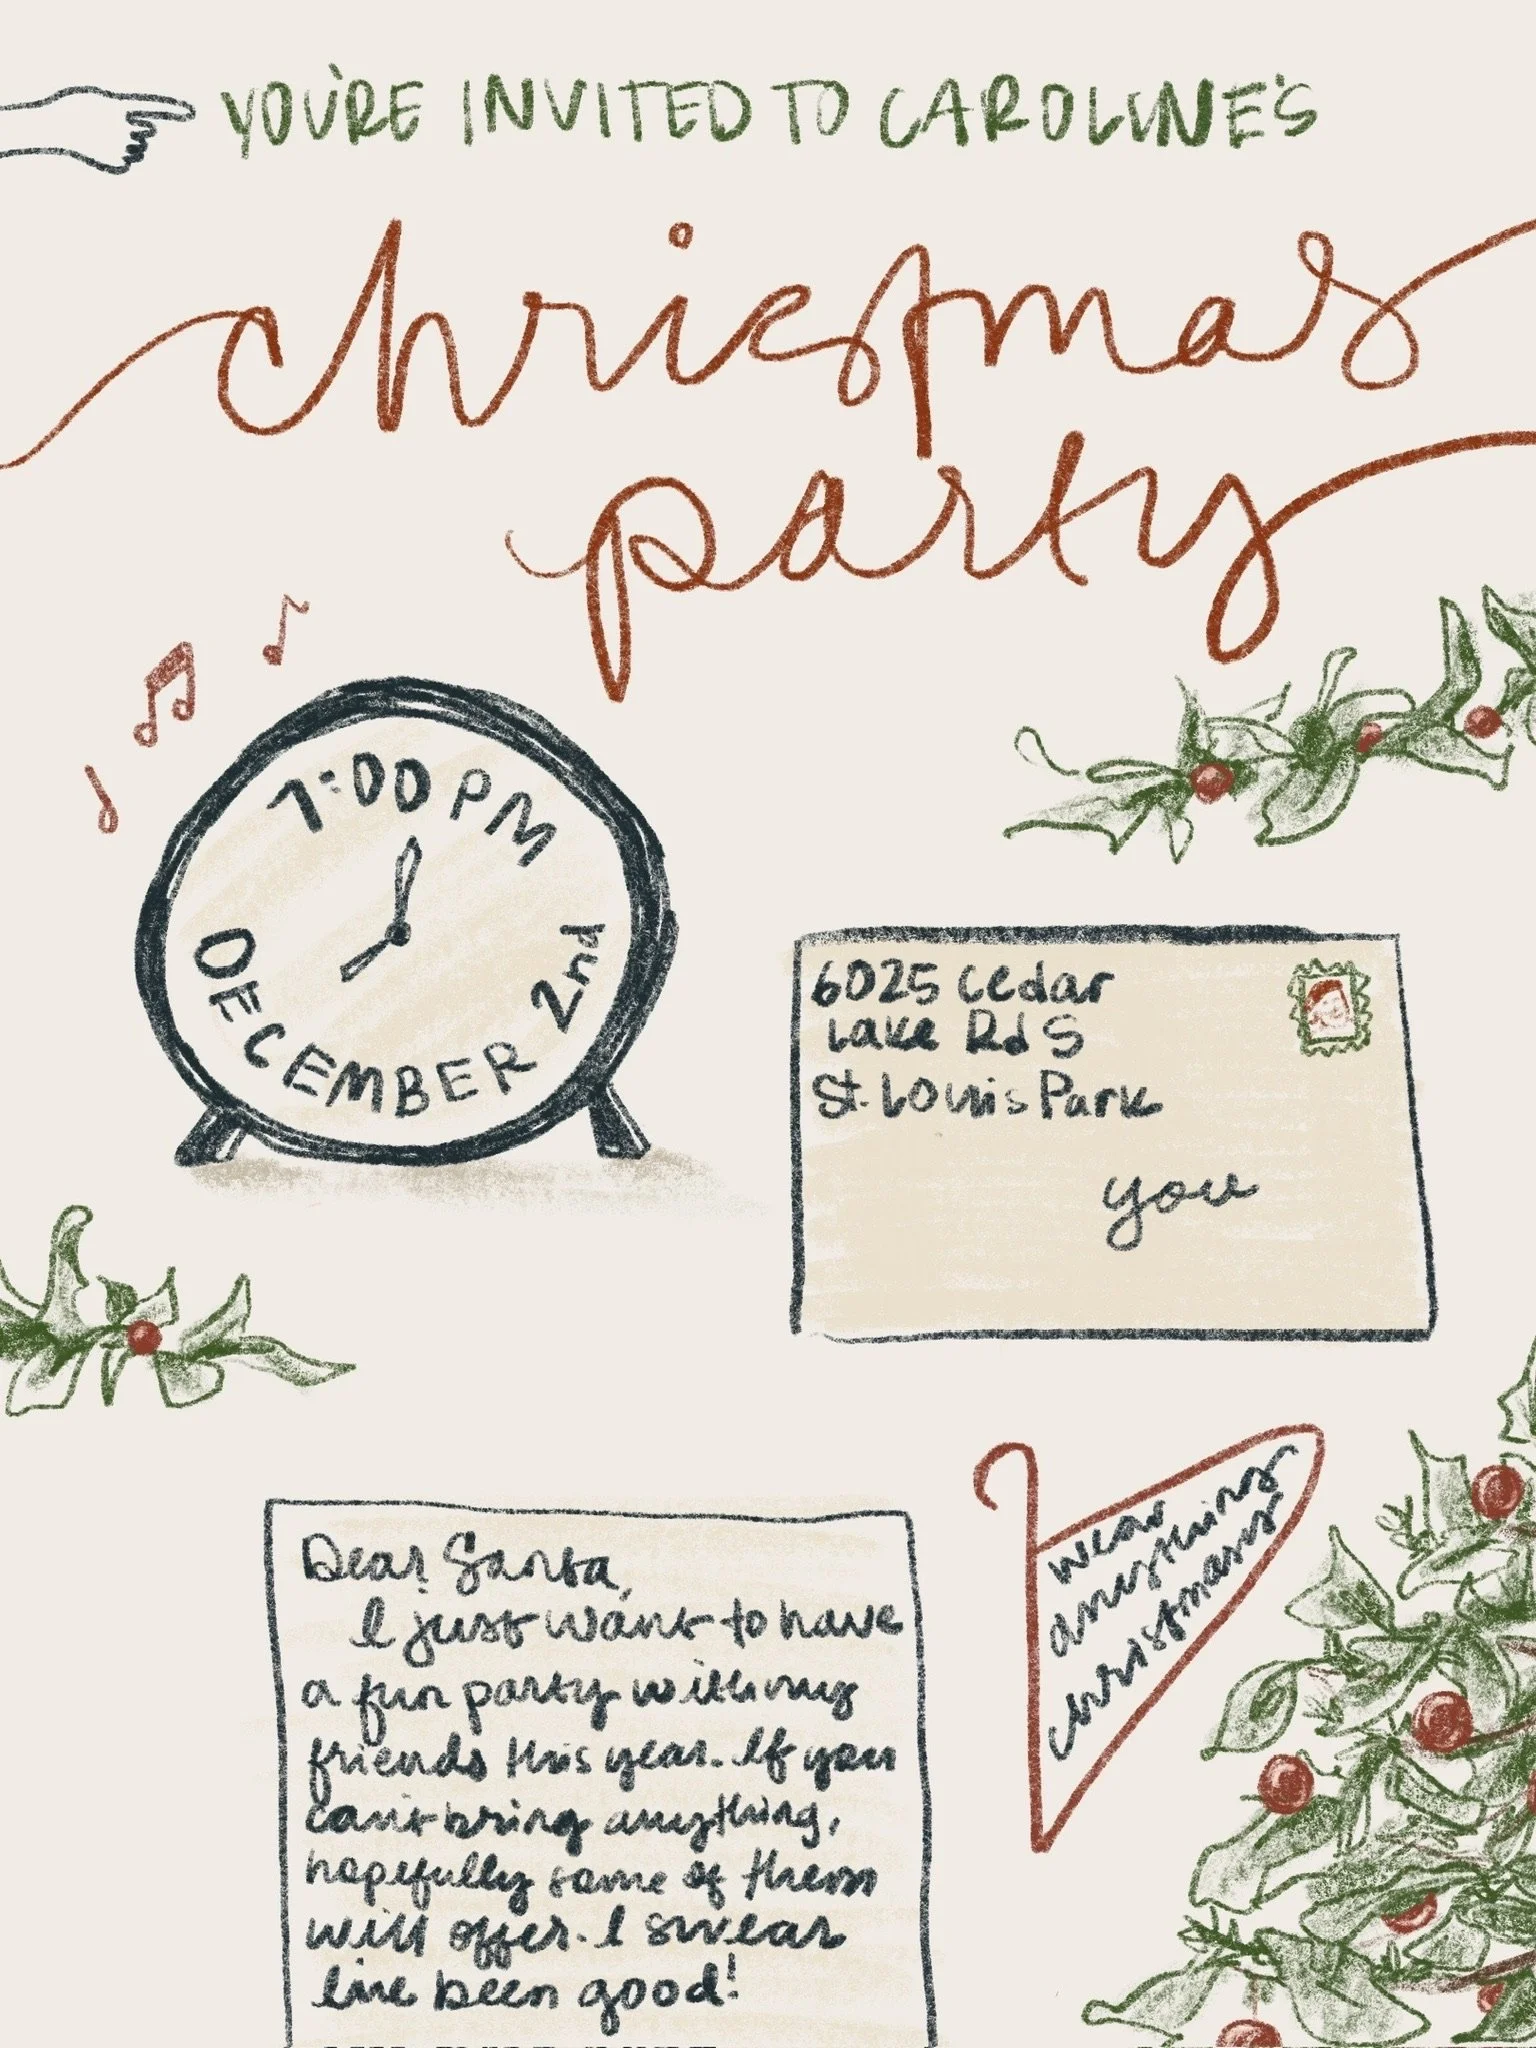 YOU'RE INVITED TO CAROLINE'S
christmas
party
7:00 PM
DECEMBER 2nd
6025 Cedar
Lake Rd S
St. Louis Park
you
wear
anything
christmasy
Dear Santa,
I just want to have
a fun party with my
friends this year. If you
can't bring anything,
hopefully some of them
will offer. I swear
I've been good!